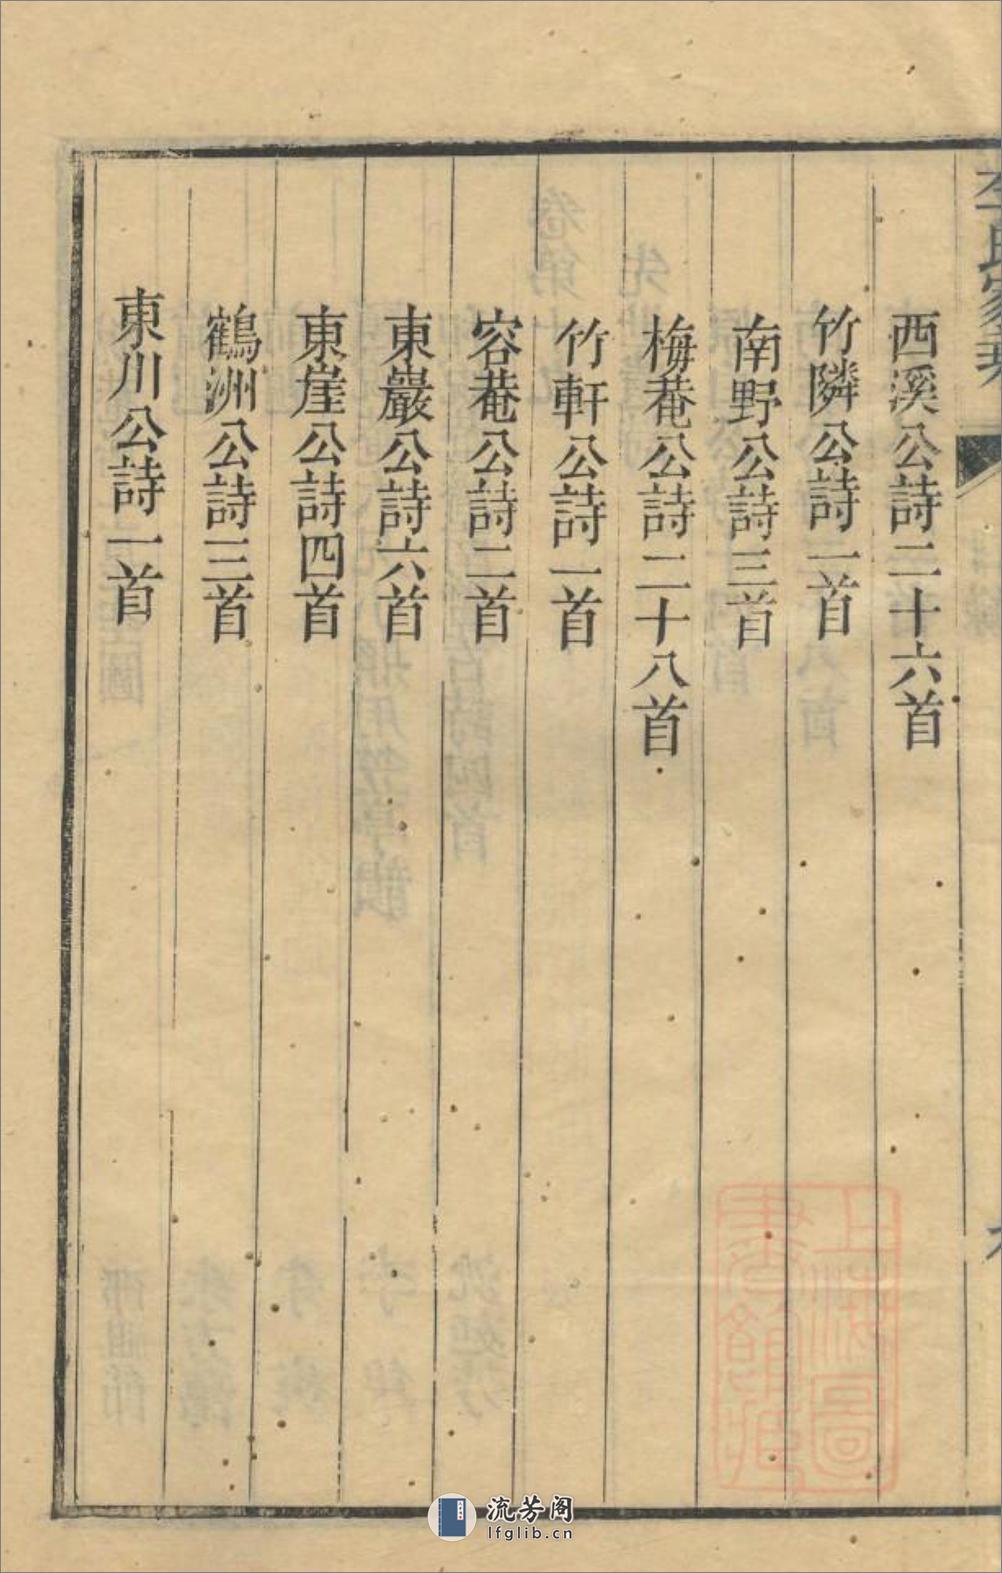 西溪公詩二十六首
竹隣公詩一首
南野公詩三首
梅菴公詩二十八首
竹軒公詩一首
容菴公詩二首
東巖公詩六首
東崖公詩四首
鶴洲公詩三首
東川公詩一首
上海圖
書館藏
流芳阁
lfglib.cn